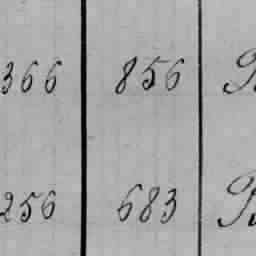 366 856
256 683